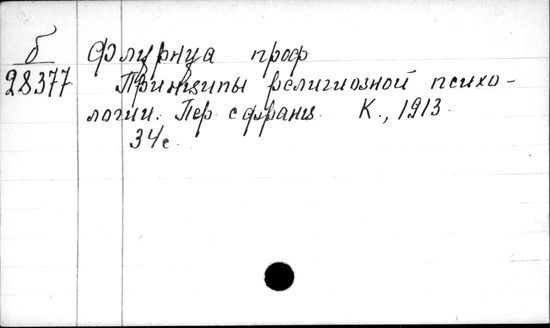 б
28377
Флурнуа проф
Принципы религиозной психо-
логии. Пер с франц. К., 1913.
34с.